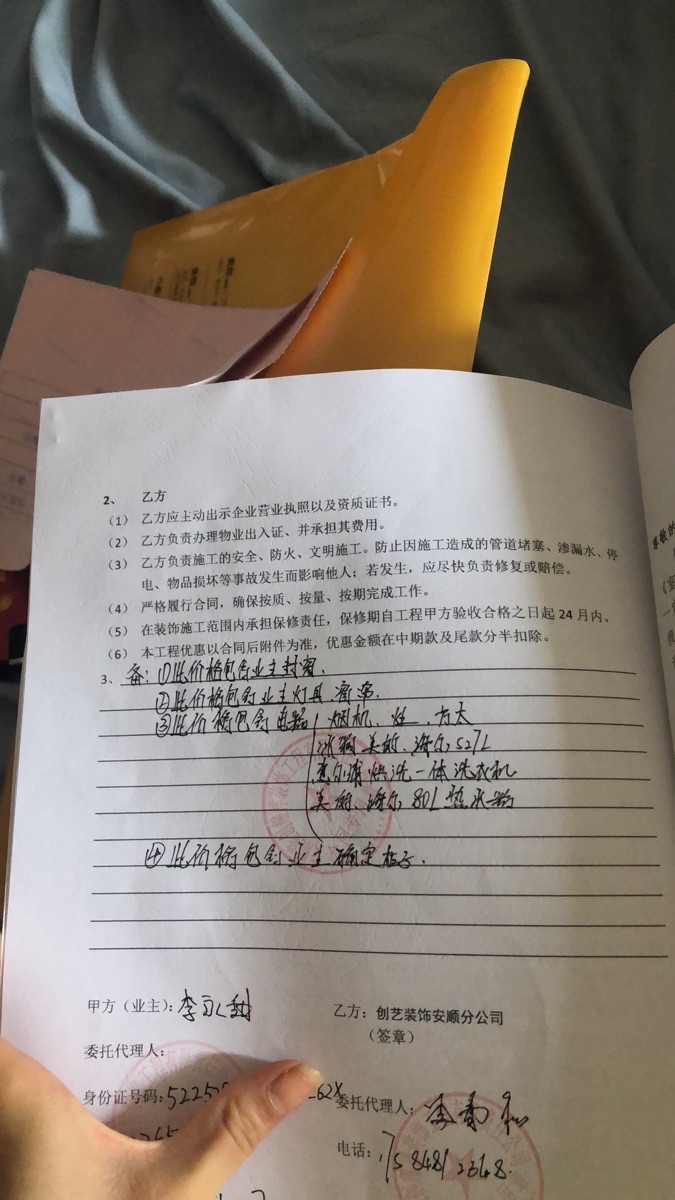 2、 乙方
（1） 乙方应主动出示企业营业执照以及资质证书。
（2） 乙方负责办理物业出入证、并承担其费用。
（3） 乙方负责施工的安全、防火、文明施工。防止因施工造成的管道堵塞、渗漏水、停
电、物品损坏等事故发生而影响他人；若发生，应尽快负责修复或赔偿。
（4） 严格履行合同，确保按质、按量、按期完成工作。
（5） 在装饰施工范围内承担保修责任，保修期自工程甲方验收合格之日起 24 月内。
（6） 本工程优惠以合同后附件为准，优惠金额在中期款及尾款分半扣除。
3、 备：①此价格包含业主封窗．
②此价格包含业主灯具．窗帘．
③此价格包含电器 烟机、灶．方太
冰箱 美的．海尔 527L
惠尔浦烘洗一体洗衣机
美的．海尔 80L 热水器
④此价格包含业主确定柜子．
甲方（业主）：李永甜
乙方：创艺装饰安顺分公司
（签章）
委托代理人：
身份证号码：5225
委托代理人：
电话：